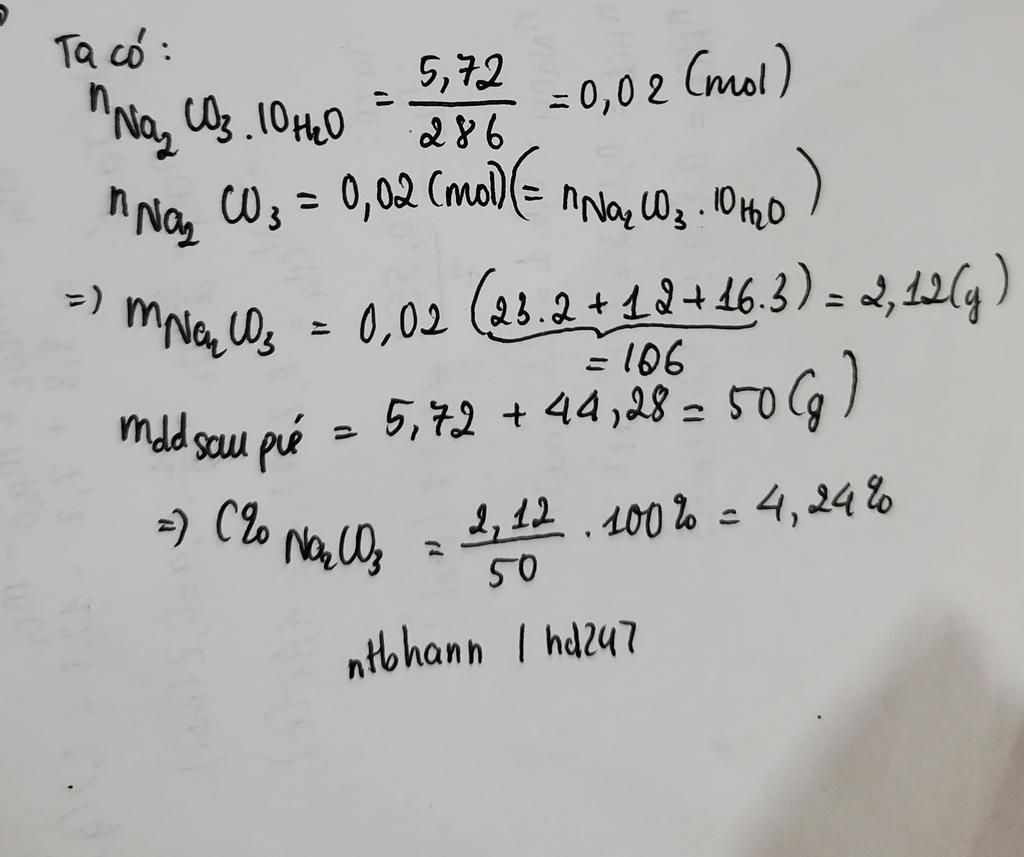 Ta có:
nNa₂CO₃.10H₂O = 5,72/286 = 0,02 (mol)
nNa₂CO₃ = 0,02 (mol) (= nNa₂CO₃.10H₂O)
=) mNa₂CO₃ = 0,02 (23.2 + 12 + 16.3) = 2,12 (g)
= 106
mdd sau pứ = 5,72 + 44,28 = 50 (g)
=) C% Na₂CO₃ = 2,12/50 . 100% = 4,24%
nthbhann | hd247